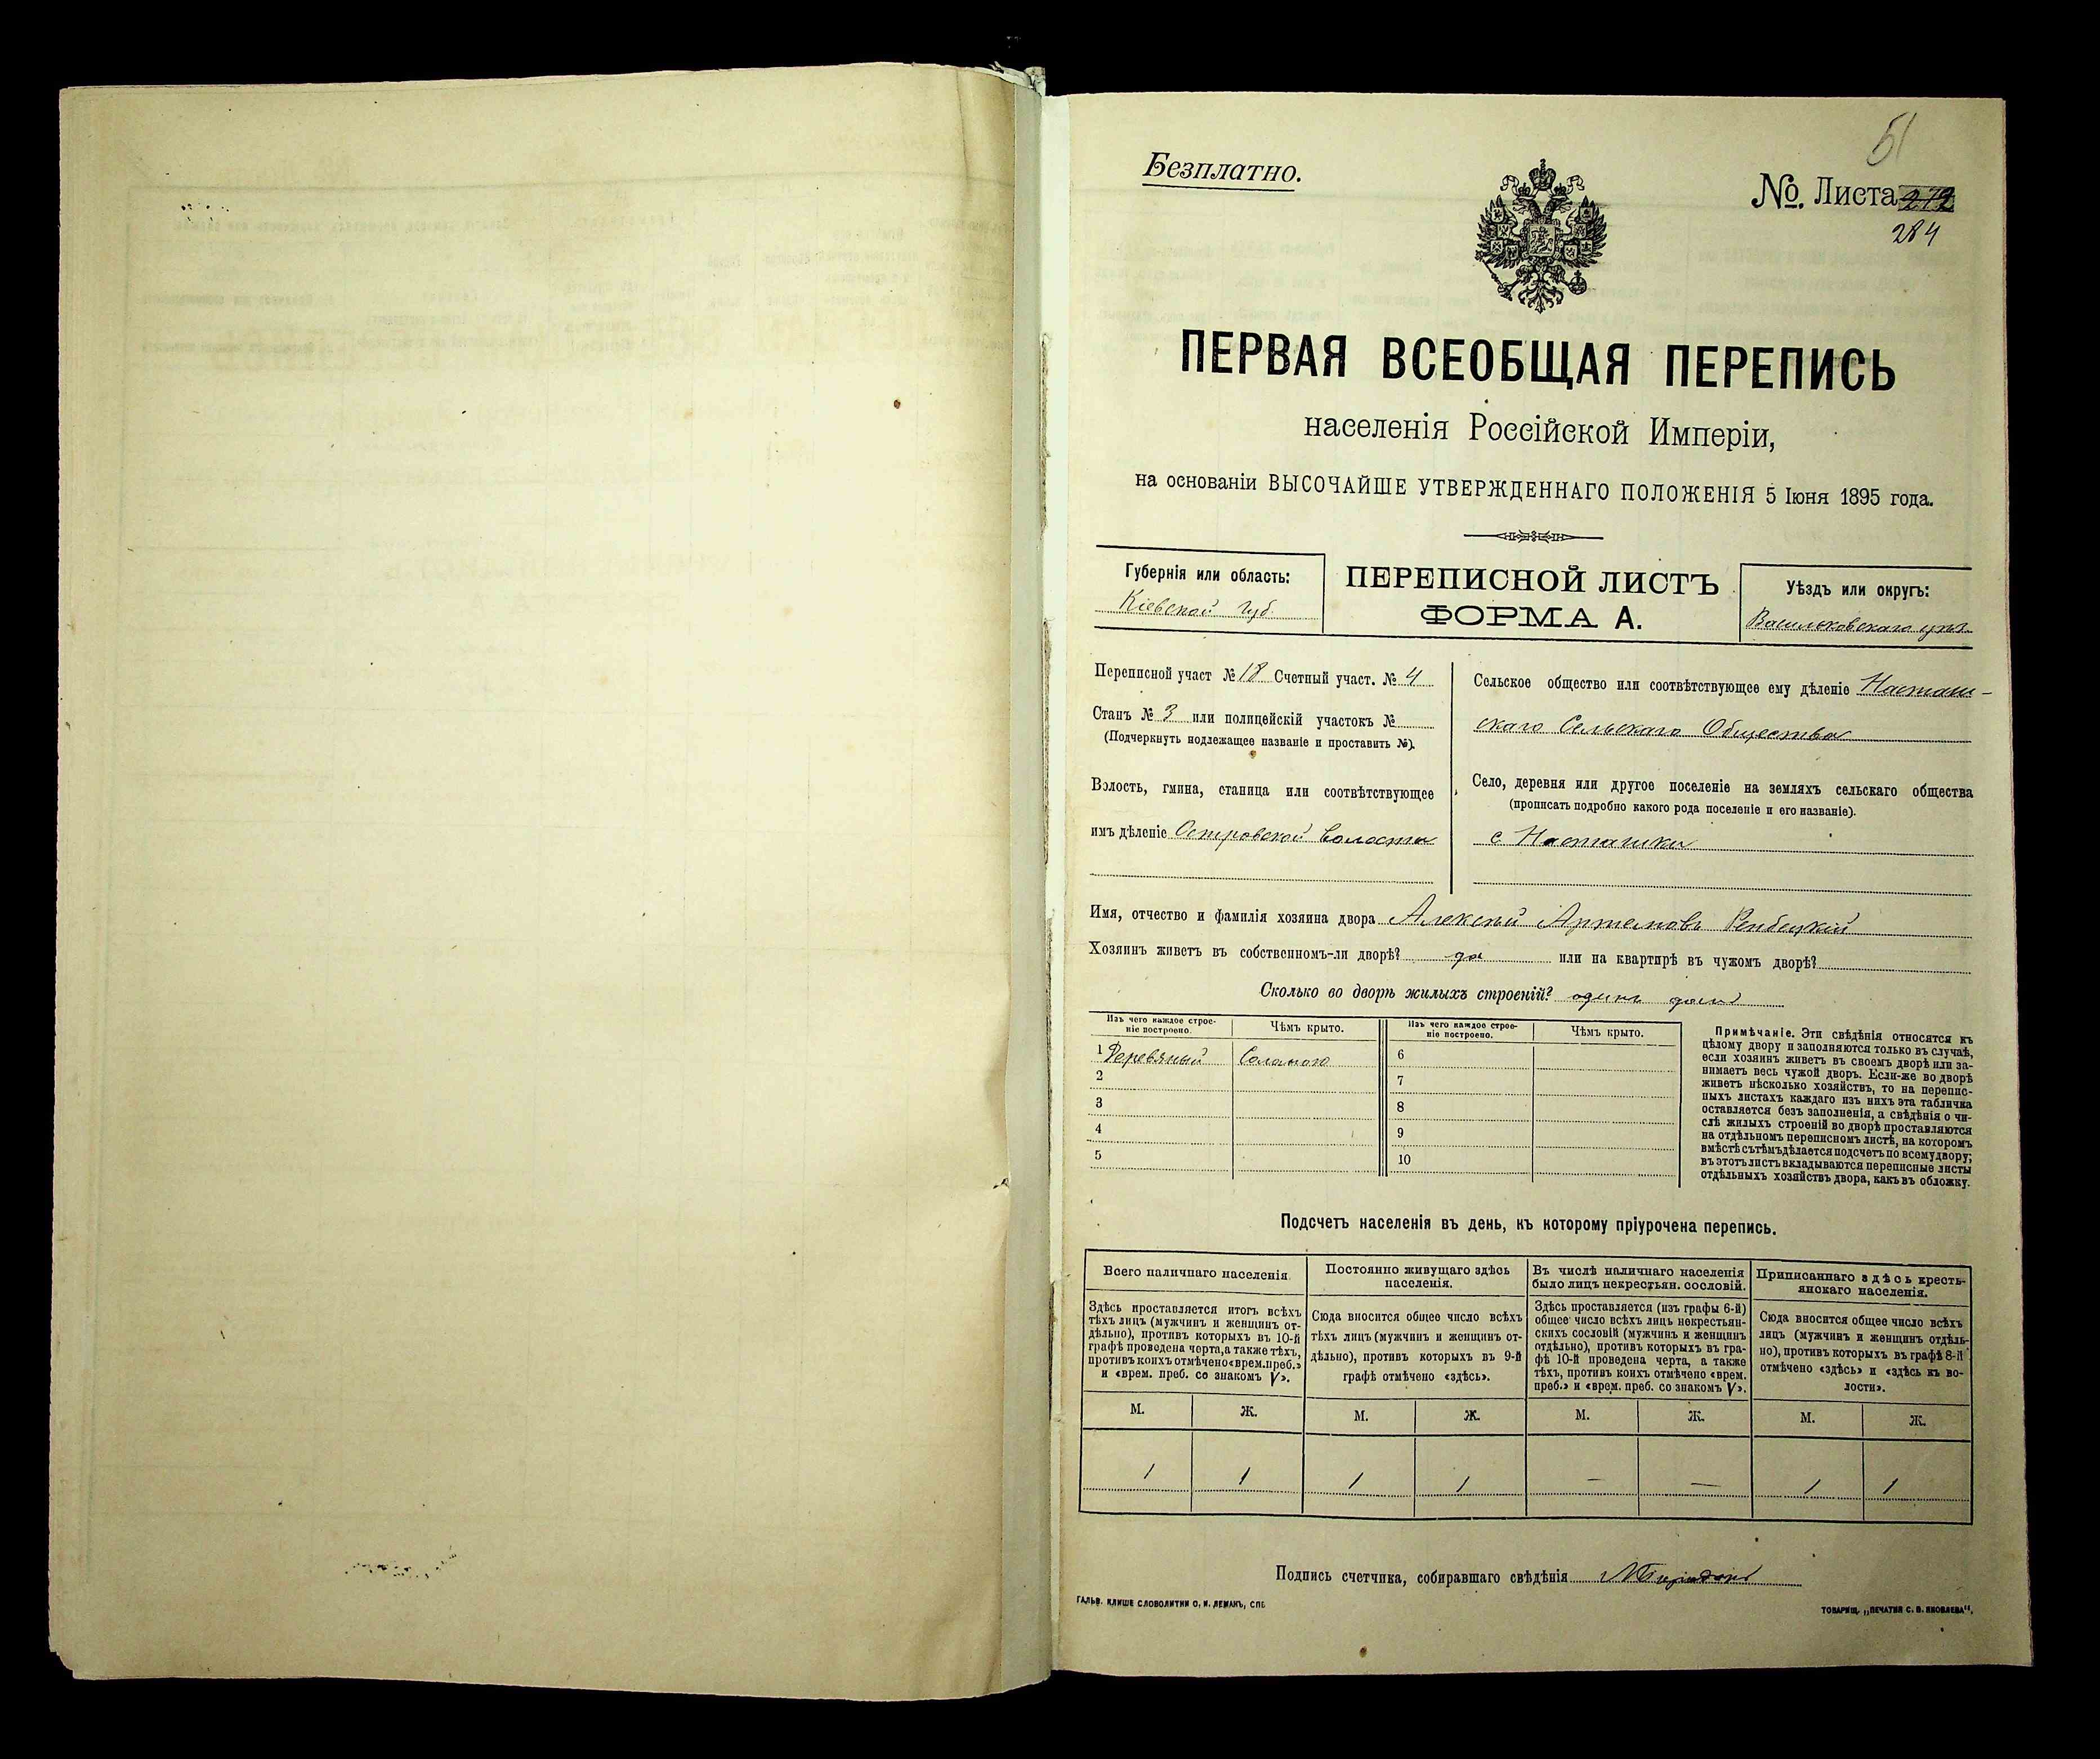 51
Безплатно.
№. Листа 272
284
ПЕРВАЯ ВСЕОБЩАЯ ПЕРЕПИСЬ
населенія Россійской Имперіи,
на основаніи ВЫСОЧАЙШЕ УТВЕРЖДЕННАГО ПОЛОЖЕНІЯ 5 Іюня 1895 года.
Губернія или область:
Кіевской Губ.
ПЕРЕПИСНОЙ ЛИСТЪ
ФОРМА А.
Уѣздъ или округъ:
Васильковскаго
Переписной участ № 18 Счетный участ. № 4
Станъ № 3 или полицейскій участокъ №
(Подчеркнуть подлежащее названіе и проставить №).
Волость, гмина, станица или соотвѣтствующее
имъ дѣленіе Островской Волости
Сельское общество или соотвѣтствующее ему дѣленіе Насташ-
скаго Сельскаго Общества
Село, деревня или другое поселеніе на земляхъ сельскаго общества
(прописать подробно какого рода поселеніе и его названіе).
с Насташки
Имя, отчество и фамилія хозяина двора Алексѣй Артемовъ
Хозяинъ живетъ въ собственномъ-ли дворѣ? да или на квартирѣ въ чужомъ дворѣ?
Сколько во дворѣ жилыхъ строеній? одинъ домъ
Изъ чего каждое строе-
ніе построено.
Чѣмъ крыто.
Изъ чего каждое строе-
ніе построено.
Чѣмъ крыто.
1 Деревяный Соломою
2
3
4
5
6
7
8
9
10
Примѣчаніе. Эти свѣдѣнія относятся къ
цѣлому двору и заполняются только въ случаѣ,
если хозяинъ живетъ въ своемъ дворѣ или за-
нимаетъ весь чужой дворъ. Если-же во дворѣ
живетъ нѣсколько хозяйствъ, то на перепис-
ныхъ листахъ каждаго изъ нихъ эта табличка
оставляется безъ заполненія, а свѣдѣнія о чи-
слѣ жилыхъ строеній во дворѣ проставляются
на отдѣльномъ переписномъ листѣ, на которомъ
вмѣстѣ съ тѣмъ дѣлается подсчетъ по всему двору;
въ этотъ листъ вкладываются переписные листы
отдѣльныхъ хозяйствъ двора, какъ въ обложку.
Подсчетъ населенія въ день, къ которому пріурочена перепись.
Всего наличнаго населенія.
Здѣсь проставляется итогъ всѣхъ
тѣхъ лицъ (мужчинъ и женщинъ от-
дѣльно), противъ которыхъ въ 10-й
графѣ проведена черта, а также тѣхъ,
противъ коихъ отмѣчено «врем. преб.»
и «врем. преб. со знакомъ V».
Постоянно живущаго здѣсь
населенія.
Сюда вносится общее число всѣхъ
тѣхъ лицъ (мужчинъ и женщинъ от-
дѣльно), противъ которыхъ въ 9-й
графѣ отмѣчено «здѣсь».
Въ числѣ наличнаго населенія
было лицъ некрестьян. сословій.
Здѣсь проставляется (изъ графы 6-й)
общее число всѣхъ лицъ некрестьян-
скихъ сословій (мужчинъ и женщинъ
отдѣльно), противъ которыхъ въ гра-
фѣ 10-й проведена черта, а также
тѣхъ, противъ коихъ отмѣчено «врем.
преб.» и «врем. преб. со знакомъ V».
Приписаннаго здѣсь кресть-
янскаго населенія.
Сюда вносится общее число всѣхъ
лицъ (мужчинъ и женщинъ отдѣль-
но), противъ которыхъ въ графѣ 8-й
отмѣчено «здѣсь» и «здѣсь къ во-
лости».
М. Ж. М. Ж. М. Ж. М. Ж.
1 1 1 1 — — 1 1
Подпись счетчика, собиравшаго свѣдѣнія
ГАЛЬВ. КЛИШЕ СЛОВОЛИТНИ О. И. ЛЕМАНЪ, СПБ
ТОВАРИЩ. „ПЕЧАТНЯ С. П. ЯКОВЛЕВА".